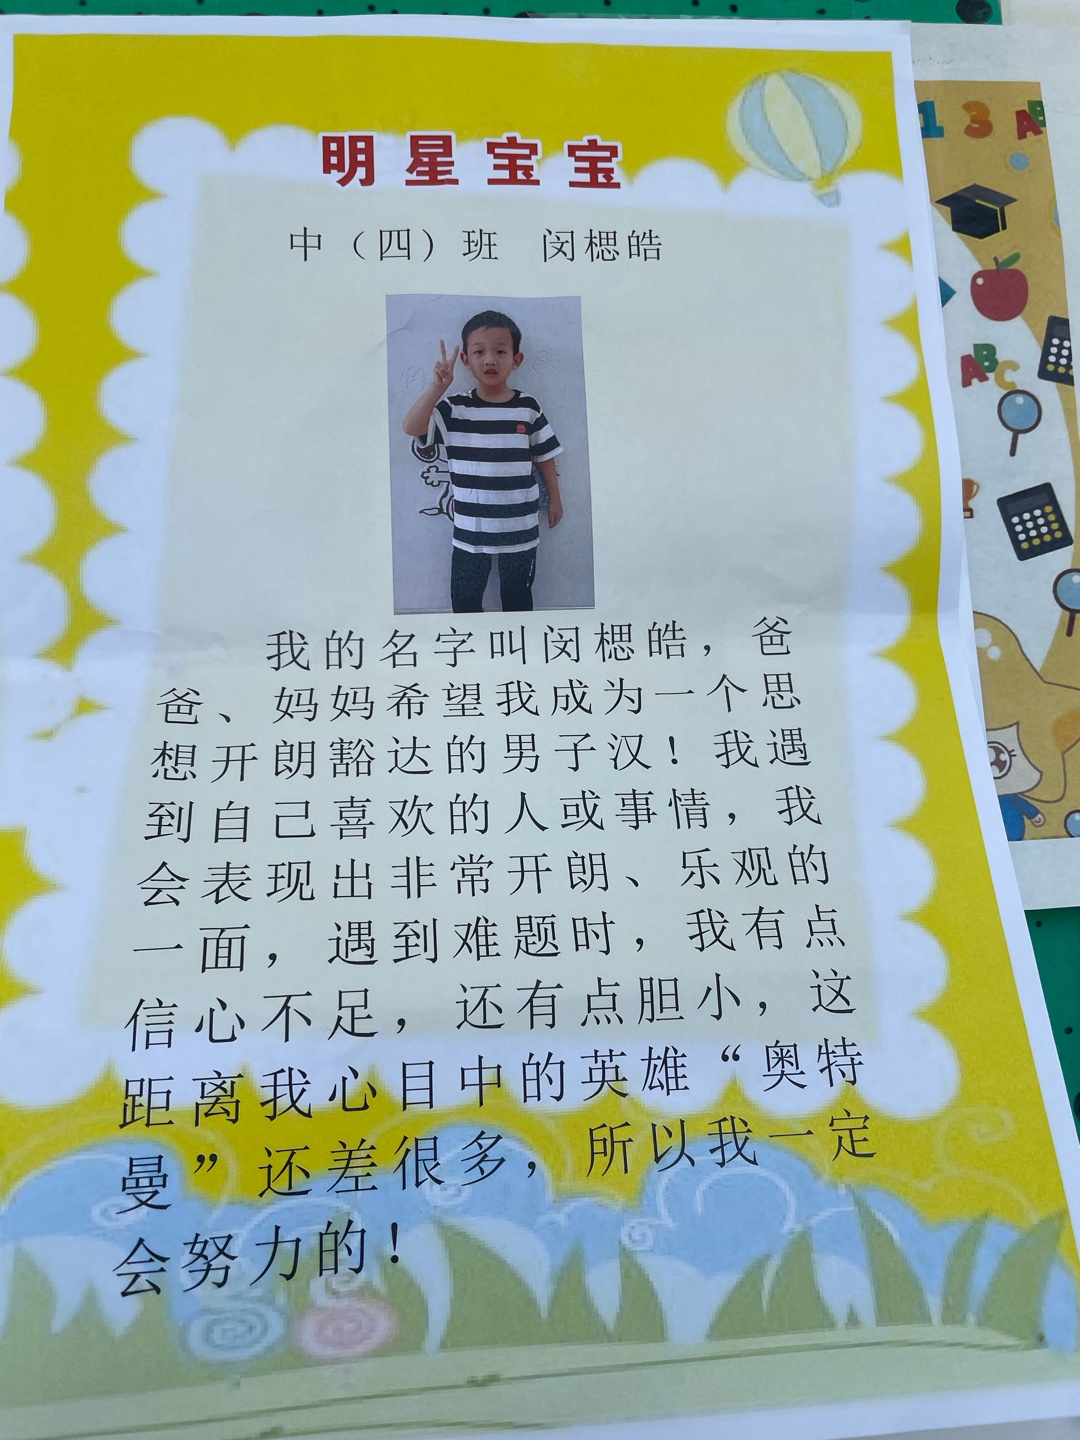 明星宝宝
中（四）班 闵楒皓
我的名字叫闵楒皓，爸
爸、妈妈希望我成为一个思
想开朗豁达的男子汉！我遇
到自己喜欢的人或事情，我
会表现出非常开朗、乐观的
一面，遇到难题时，我有点
信心不足，还有点胆小，这
距离我心目中的英雄“奥特
曼”还差很多，所以我一定
会努力的！
1 3 AB
ABC